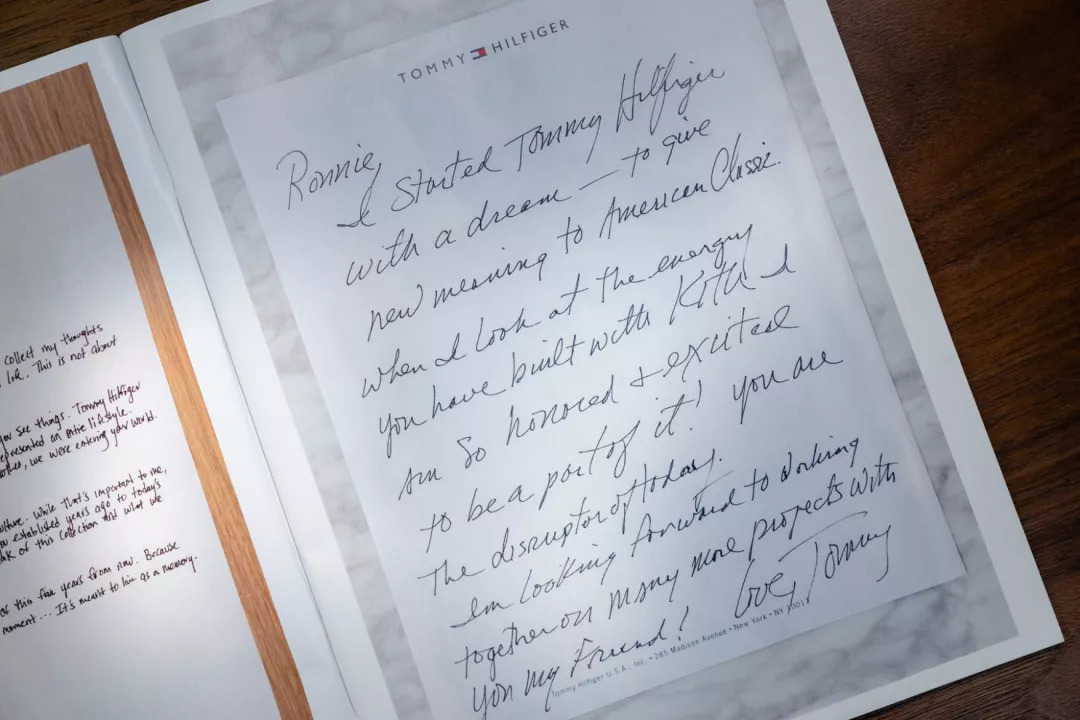 collect my thoughts
life. This is not about
you see things. Tommy Hilfiger
represented an entire lifestyle.
we were entering your world.
culture. While that's important to me,
you established years ago to today's
of this collection and what we
of this five years from now. Because
moment... It's meant to live as a memory.
TOMMY HILFIGER
Ronnie,
I Started Tommy Hilfiger
with a dream — to give
new meaning to American Classic.
when I look at the energy
you have built with Kith I
am so honored + excited
to be a part of it! you are
The disruptor of today.
Im looking forward to working
together on many more projects with
you my Friend! Love, Tommy
Tommy Hilfiger U.S.A., Inc. • 285 Madison Avenue • New York • NY 10017